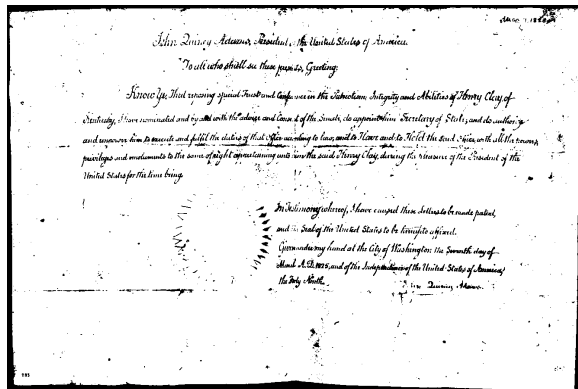 John Quincy Adams, President of the United States of America.
To all who shall see these presents, Greeting:
Know Ye, That reposing special Trust and Confidence in the Patriotism, Integrity and Abilities of Henry Clay of
Kentucky, I have nominated and by and with the advice and Consent of the Senate, do appoint him Secretary of State, and do authorize
and empower him to execute and fulfil the duties of that Office according to law, and to Have and to Hold the said Office, with all the powers,
privileges and emoluments to the same of right appertaining unto him the said Henry Clay, during the pleasure of the President of the
United States for the time being.
In Testimony whereof, I have caused these Letters to be made patent,
and the Seal of the United States to be hereunto affixed.
Given under my hand at the City of Washington the Seventh day of
March A.D. 1825, and of the Independence of the United States of America,
the Forty Ninth.
John Quincy Adams.